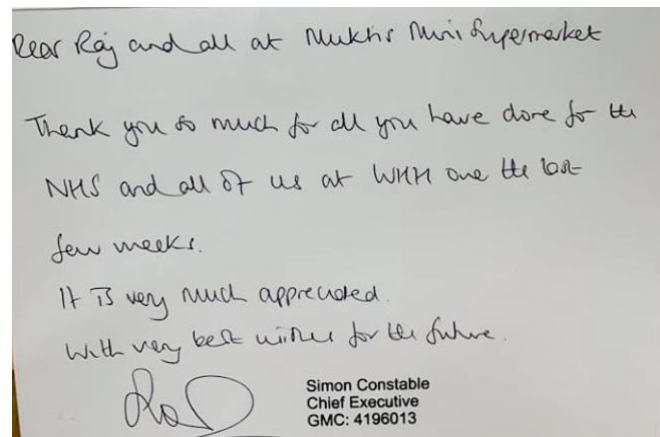 Dear Raj and all at Mukhis Mini Supermarket
Thank you so much for all you have done for the
NHS and all of us at WHH over the last
few weeks.
It is very much appreciated.
With very best wishes for the future.
Simon Constable
Chief Executive
GMC: 4196013